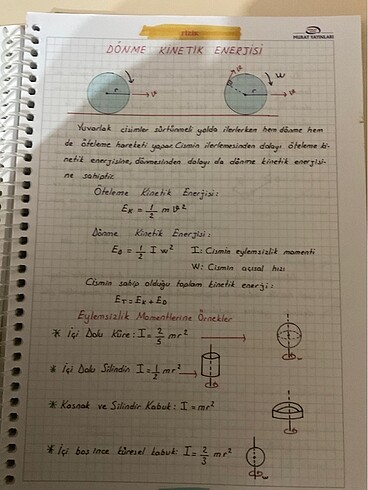 fizik
MURAT YAYINLARI
DÖNME KİNETİK ENERJİSİ
r
r
W
Yuvarlak cisimler sürtünmeli yolda ilerlerken hem dönme hem
de öteleme hareketi yapar. Cismin ilerlemesinden dolayı öteleme ki-
netik enerjisine, dönmesinden dolayı da dönme kinetik enerjisi-
ne sahiptir.
Öteleme Kinetik Enerjisi:
E_K = 1/2 m ϑ²
Dönme Kinetik Enerjisi:
E_D = 1/2 I w² I: Cismin eylemsizlik momenti
W: Cismin açısal hızı
Cismin sahip olduğu toplam kinetik enerji:
E_T = E_K + E_D
Eylemsizlik Momentlerine Örnekler
* İçi Dolu Küre: I = 2/5 mr²
* İçi Dolu Silindir I = 1/2 mr²
* Kasnak ve Silindir Kabuk: I = mr²
* İçi boş ince küresel kabuk: I = 2/3 mr²